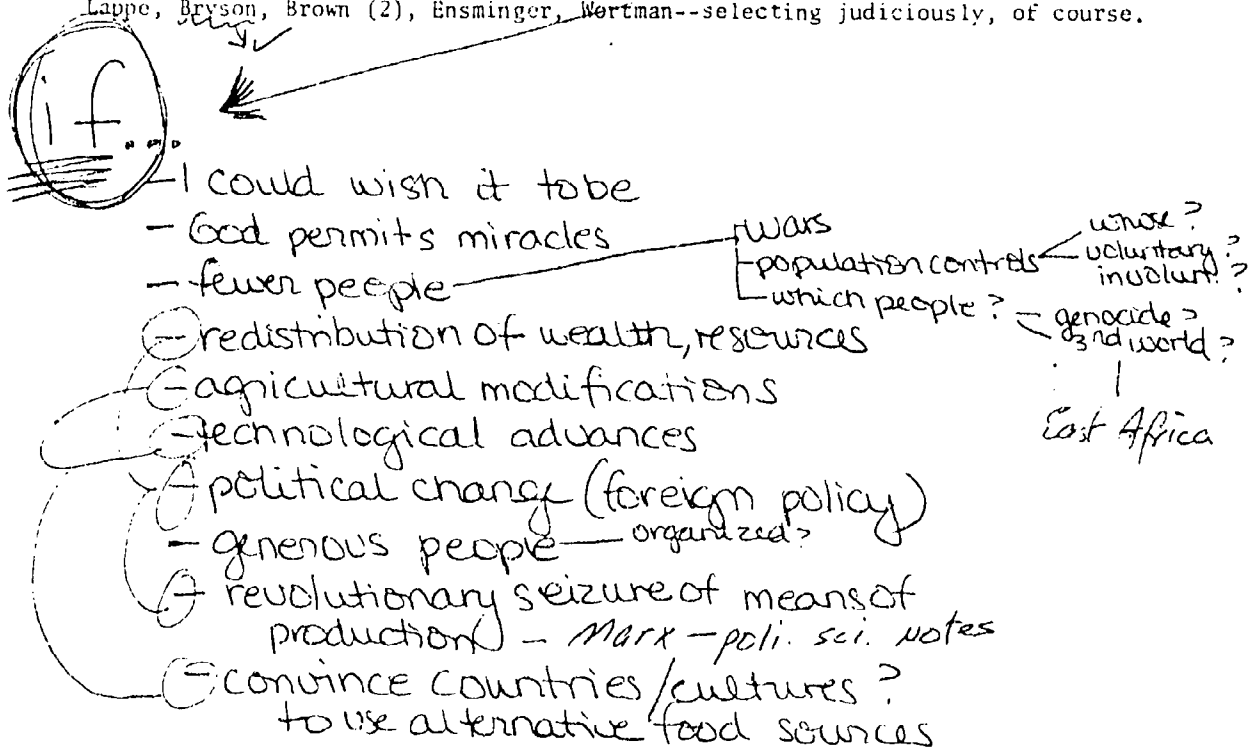 Lappe, Bryson, Brown (2), Ensminger, Wortman--selecting judiciously, of course.
if...
- I could wish it to be
- God permits miracles
- fewer people
wars
- population controls
whose?
voluntary?
involunt.?
- which people?
- genocide?
3rd world?
East Africa
- redistribution of wealth, resources
- agricultural modifications
- technological advances
- political change (foreign policy)
- generous people — organized?
- revolutionary seizure of means of
production - Marx - poli. sci. notes
- convince countries/cultures?
to use alternative food sources